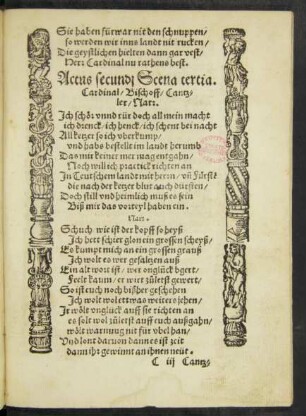 Sie haben fürwar nit den schnuppen/
so werden wir inns landt nit rucken/
Die geystlichen hielten dann gar vest/
Herr Cardinal nu rathens best.
Actus secundi Scena tertia.
Cardinal/ Bischoff/ Cantz-
ler/ Narr.
Ich schör vnnd tür doch all mein macht
ich denck/ ich henck/ ich schent bei nacht
All ketzer so ich vberkump/
vnd habs bestellt im landt herumb
Das mir keiner mer mag entgahn/
Noch will ich practick richten an
In Teutschem landt mit herrn/ vñ Fürstē
die nach der ketzer blut auch dürsten/
Doch still vnd heimlich muß es sein
Biß mir das vorteyl haben ein.
Narr.
Schuch wie ist der kopff so heyß
Ich hett schier glon ein grossen scheyß/
Es kumpt mich an ein grossen grauß
Ich wolt es wer gesaltzen auß
Ein alt wort ist/ wer vnglück bgert/
Feelt kaum/ er wirt zületst gewert/
So ist euch noch bißher geschehen
Ich wolt wol ettwas weiters jehen/
Ir wölt vnglück auff sie richten an
es solt wol zületst auff euch außgahn/
wölt warnung nit für vbel han/
Vnd lont daruon dann es ist zeit
dann ihr gewinnt an ihnen neüt.
C iij Cantz-